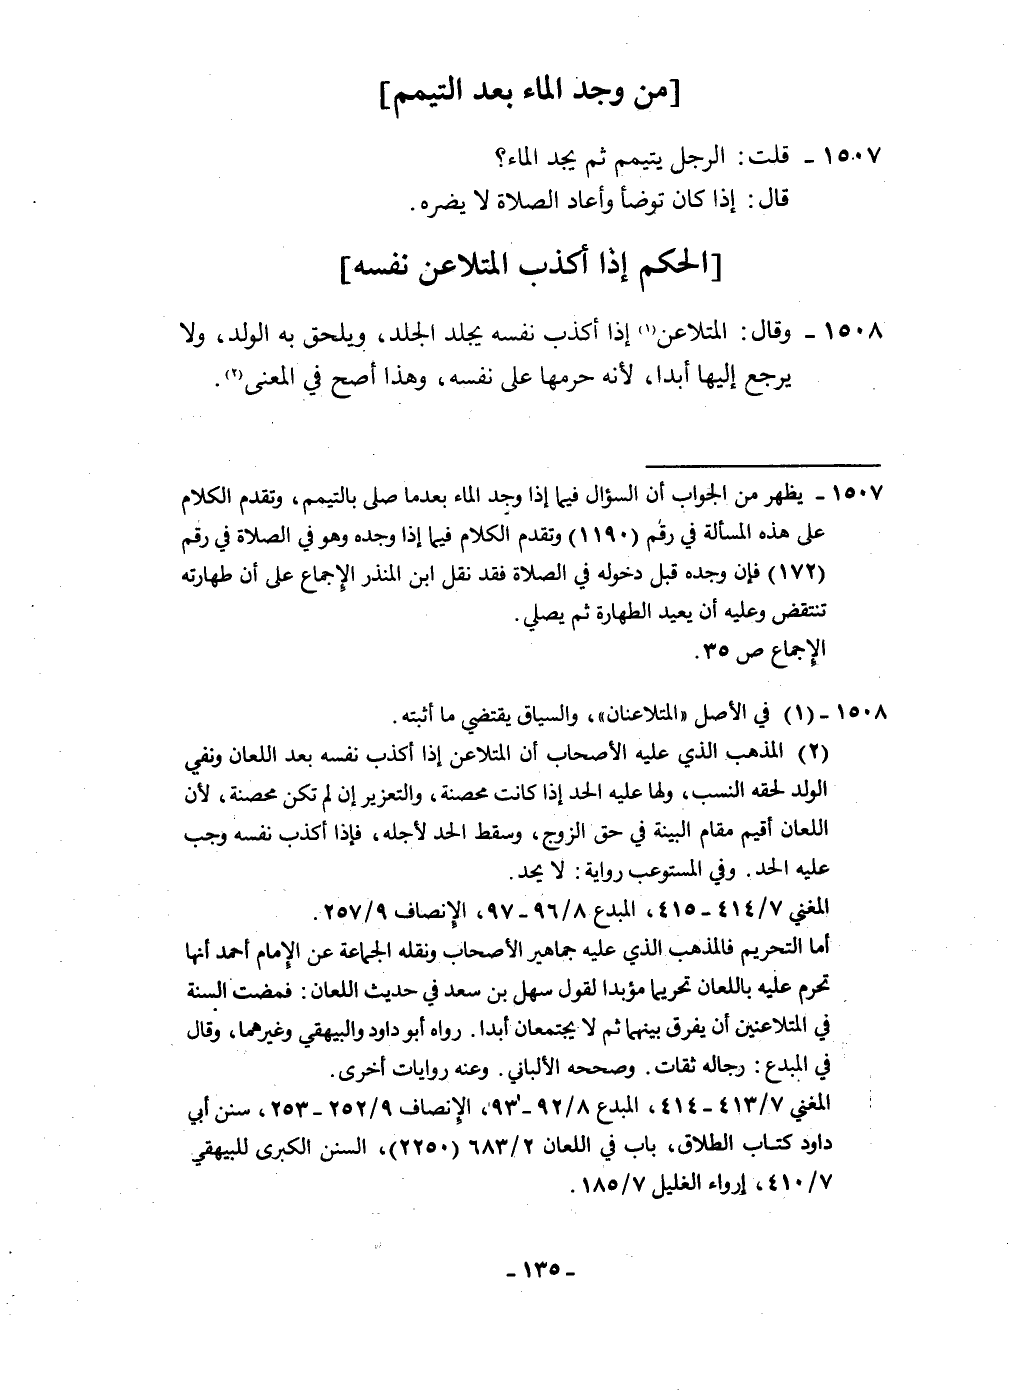 [من وجد الماء بعد التيمم]
١٥٠٧ ـ قلت: الرجل يتيمم ثم يجد الماء؟
قال: إذا كان توضأ وأعاد الصلاة لا يضره.
[الحكم إذا أكذب المتلاعن نفسه]
١٥٠٨ ـ وقال: المتلاعن(١) إذا أكذب نفسه يجلد الجلد، ويلحق به الولد، ولا
يرجع إليها أبدا، لأنه حرمها على نفسه، وهذا أصح في المعنى(٢).
١٥٠٧ ـ يظهر من الجواب أن السؤال فيما إذا وجد الماء بعدما صلى بالتيمم، وتقدم الكلام
على هذه المسألة في رقم (١١٩٠) وتقدم الكلام فيما إذا وجده وهو في الصلاة في رقم
(١٧٢) فإن وجده قبل دخوله في الصلاة فقد نقل ابن المنذر الإجماع على أن طهارته
تنتقض وعليه أن يعيد الطهارة ثم يصلي.
الإجماع ص ٣٥.
١٥٠٨ ـ (١) في الأصل «المتلاعنان»، والسياق يقتضي ما أثبته.
(٢) المذهب الذي عليه الأصحاب أن المتلاعن إذا أكذب نفسه بعد اللعان ونفي
الولد لحقه النسب، ولها عليه الحد إذا كانت محصنة، والتعزير إن لم تكن محصنة، لأن
اللعان أقيم مقام البينة في حق الزوج، وسقط الحد لأجله، فإذا أكذب نفسه وجب
عليه الحد. وفي المستوعب رواية: لا يحد.
المغني ٤١٤/٧ ـ ٤١٥، المبدع ٩٦/٨ ـ ٩٧، الإنصاف ٢٥٧/٩.
أما التحريم فالمذهب الذي عليه جماهير الأصحاب ونقله الجماعة عن الإمام أحمد أنها
تحرم عليه باللعان تحريما مؤبدا لقول سهل بن سعد في حديث اللعان: فمضت السنة
في المتلاعنين أن يفرق بينهما ثم لا يجتمعان أبدا. رواه أبو داود والبيهقي وغيرهما، وقال
في المبدع: رجاله ثقات. وصححه الألباني. وعنه روايات أخرى.
المغني ٤١٣/٧ ـ ٤١٤، المبدع ٩٢/٨ ـ ٩٣، الإنصاف ٢٥٢/٩ ـ ٢٥٣، سنن أبي
داود كتاب الطلاق، باب في اللعان ٦٨٣/٢ (٢٢٥٠)، السنن الكبرى للبيهقي
٤١٠/٧، إرواء الغليل ١٨٥/٧.
ـ ١٣٥ ـ